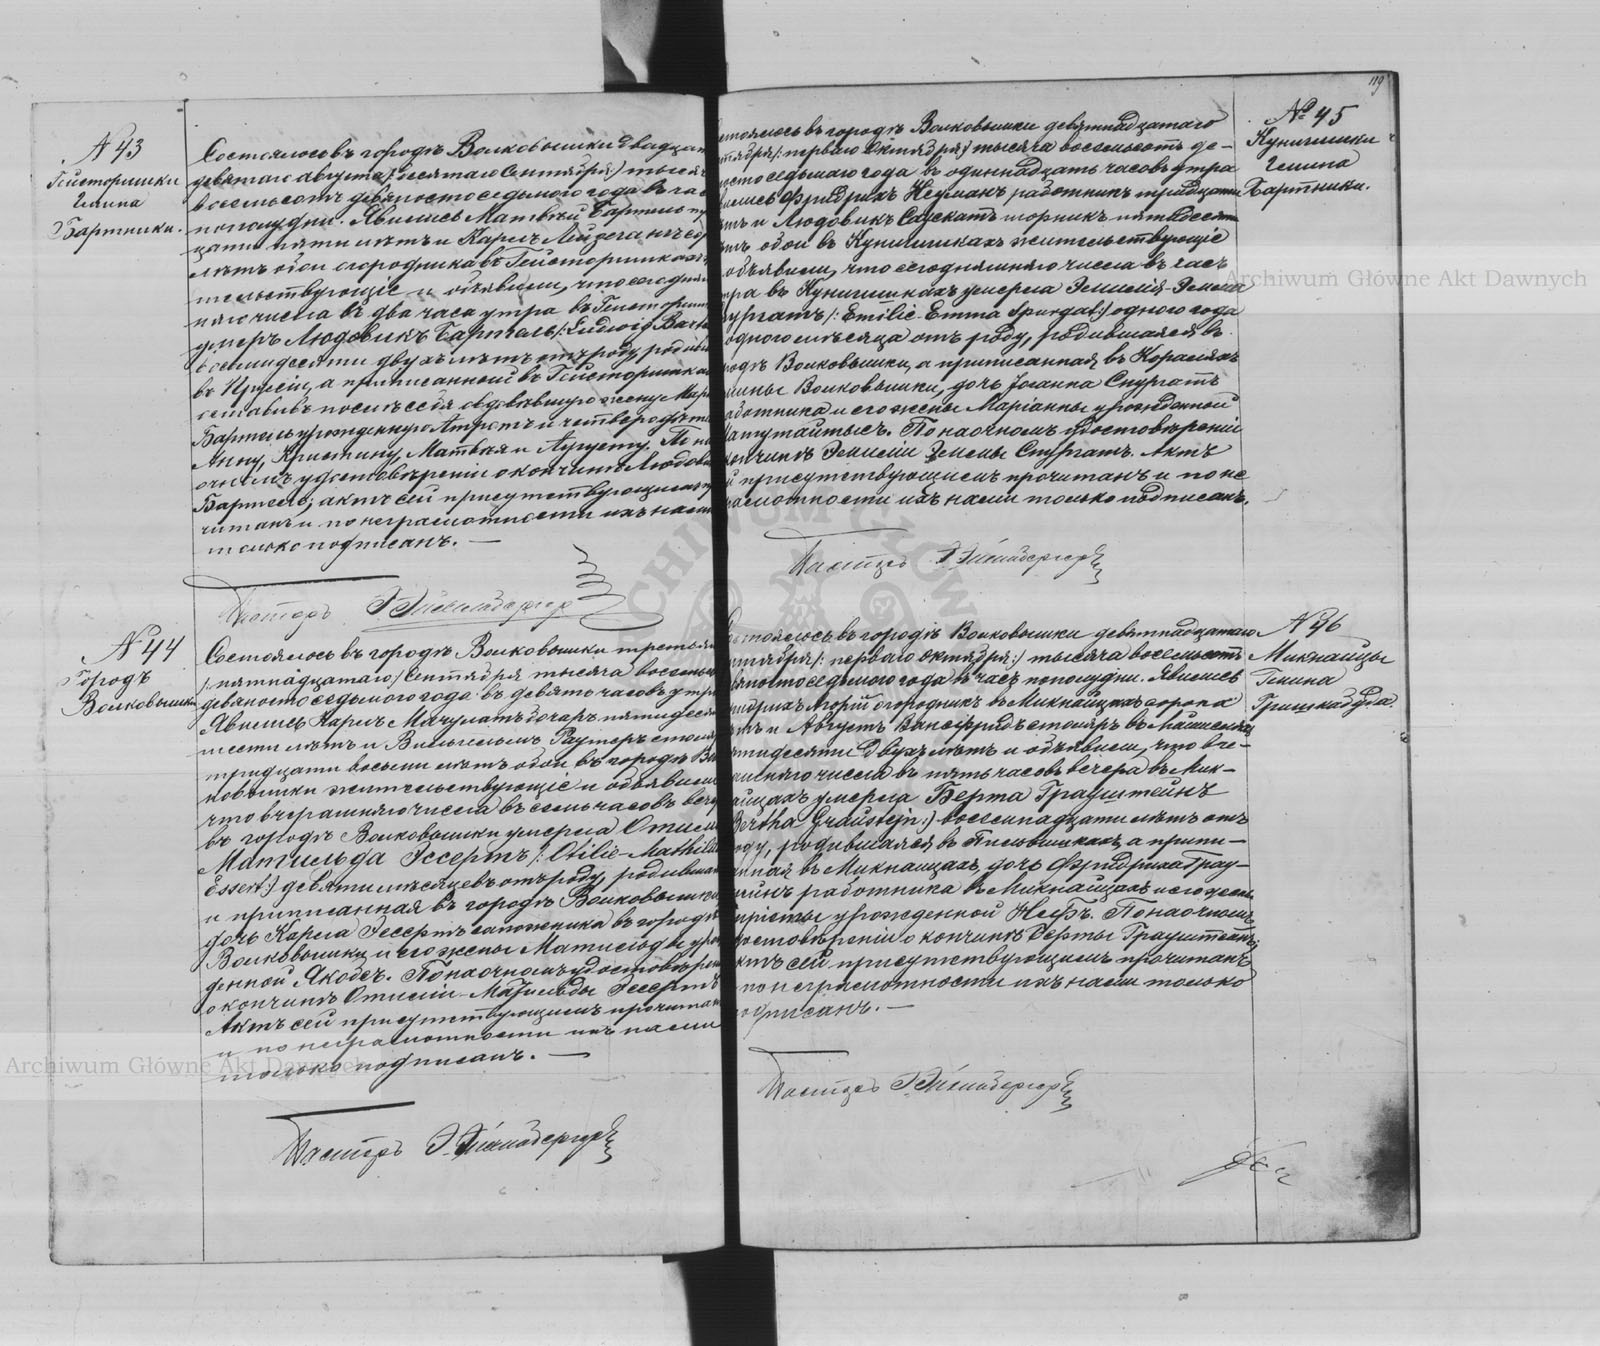 119
N 43
Гейсторишки
Гмина
Бартники.
Состоялось въ городѣ Волковышки двадцат
девятаго августа /:десятаго Сентября:/ тысяча
восемьсотъ девяносто седьмого года въ час
пополудни. Явились Матвѣй Бартель
цати пяти лѣтъ и Карлъ
лѣтъ обои огородника въ Гейсторишкахъ
тельствующіе и объявили, что сегодня
няго числа въ два часа утра въ Гейсториш
умеръ Людовикъ Бартель /:Ludwig Bart
восемидесяти двухъ лѣтъ отъ роду, родив
въ Пруссіи, а приписанный въ Гейсторишка
оставивъ послѣ себя овдовѣвшую жену Мар
Бартель урожденную и четверо дѣт
Анну, Кристину, Матвѣя и Августу. По на
очномъ удостовѣреніи о кончинѣ Людови
Бартель, актъ сей присутствующимъ пр
читанъ и по неграмотности ихъ нами
только подписанъ. —
Пасторъ
N 44
Городъ
Волковышки
Состоялось въ городѣ Волковышки третья
/: пятнадцатаго/ Сентября тысяча восемьсо
девяносто седьмого года въ девять часовъ утра
Явились Карлъ Мачулатъ бочаръ пятидеся
шести лѣтъ и Вильгельмъ Раутеръ столяр
тридцати восьми лѣтъ обои въ городѣ Во
ковышки жительствующіе и объявили
что вчерашняго числа въ семь часовъ вече
въ городѣ Волковышки умерла Отили
Матильда Эссертъ /: Otilie-Mathild
Essert:/ девяти мѣсяцевъ отъ роду, родивша
и приписанная въ городѣ Волковышки
дочь Карла Эссертъ сапожника въ городѣ
Волковышки и его жены Матильды уро
денной Якобъ. По наочномъ удостовѣрен
о кончинѣ Отиліи-Матильды Эссертъ
Актъ сей присутствующимъ прочитан
и по неграмотности ихъ нами
только подписанъ. —
Пасторъ
№ 45
Кунигишки
Гмина
Бартники.
стоялось въ городѣ Волковышки девятнадцатаго
тября /: перваго Октября:/ тысяча восемьсотъ де-
носто седьмаго года въ одиннадцать часовъ утра
вились Фридрихъ Нейманъ работникъ тридцати
ѣтъ и Людовикъ Саускатъ шорникъ пятидесяти
ѣтъ обои въ Кунигишкахъ жительствующіе
объявили, что сегодняшняго числа въ часъ
тра въ Кунигишкахъ умерла Эмилія-Эмма
пургатъ /: Emilie-Emma Spurgat:/ одного года
одного мѣсяца отъ роду, родившаяся въ
родѣ Волковышки, а приписанная въ
мины Волковышки, дочь Іоганна Спургатъ
аботника и его жены Маріанны урожденной
По наочномъ удостовѣреніи
кончинѣ Эмиліи Эммы Спургатъ. Актъ
й присутствующимъ прочитанъ и по не
рамотности ихъ нами только подписанъ.
Пасторъ
N 46
Микнайцы
Гмина
Гришкабуда.
стоялось въ городѣ Волковышки девятнадцатаго
нтября /: перваго октября:/ тысяча восемьсотъ
вяносто седьмого года въ часъ пополудни. Явились
огородникъ въ Микнайцахъ сорока
ѣтъ и Августъ столяръ въ
ятидесяти двухъ лѣтъ и объявили, что вче-
ашняго числа въ пять часовъ вечера въ Мик-
айцахъ умерла Берта Грауштейнъ
Bertha Graustejn:/ восемнадцати лѣтъ отъ
оду, родившаяся въ а припи-
нная въ Микнайцахъ, дочь Фридриха Грау-
ейнъ работника въ Микнайцахъ и его жены
урожденной Нефъ. По наочномъ
достовѣреніи о кончинѣ Берты Грауштейнъ,
ктъ сей присутствующимъ прочитанъ
по неграмотности ихъ нами только
одписанъ. —
Пасторъ
Archiwum Główne Akt Dawnych
Archiwum Główne Akt Dawnych